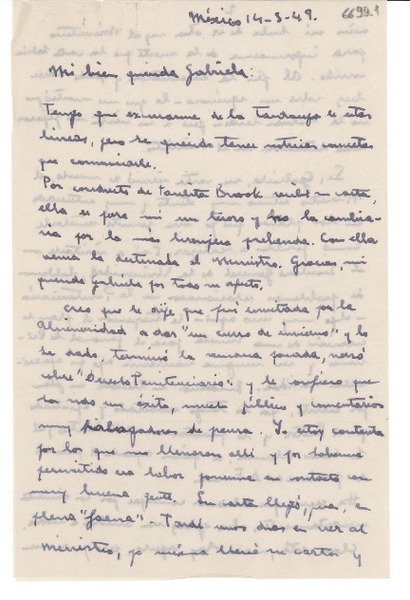 6699.1
México 14-3-49.
Mi bien querida Gabriela:
Tengo que excusarme de la tardanza de estas
líneas, pero he querido tener noticias concretas
que comunicarle.
Por conducto de Paulita Brook recibí su carta,
ella es para mí un tesoro y no la cambia-
ría por la más lisonjera prebenda. Con ella
venía la destinada al Ministro. Gracias, mi
querida Gabriela por todo su afecto.
Creo que le dije que fui invitada por la
Universidad a dar "un curso de invierno" y lo
he dado. Terminó la semana pasada, versó
sobre "Derecho Penitenciario" y le confieso que
ha sido un éxito, mucho público y comentarios
muy halagadores de prensa. Yo estoy contenta
por los que me llevaron allí y por haberme
permitido esa labor ponerme en contacto con
muy buena gente. Su carta llegó, pues, en
plena "faena" - Tardé unos días en ver al
Ministro, yo misma llevé su carta y